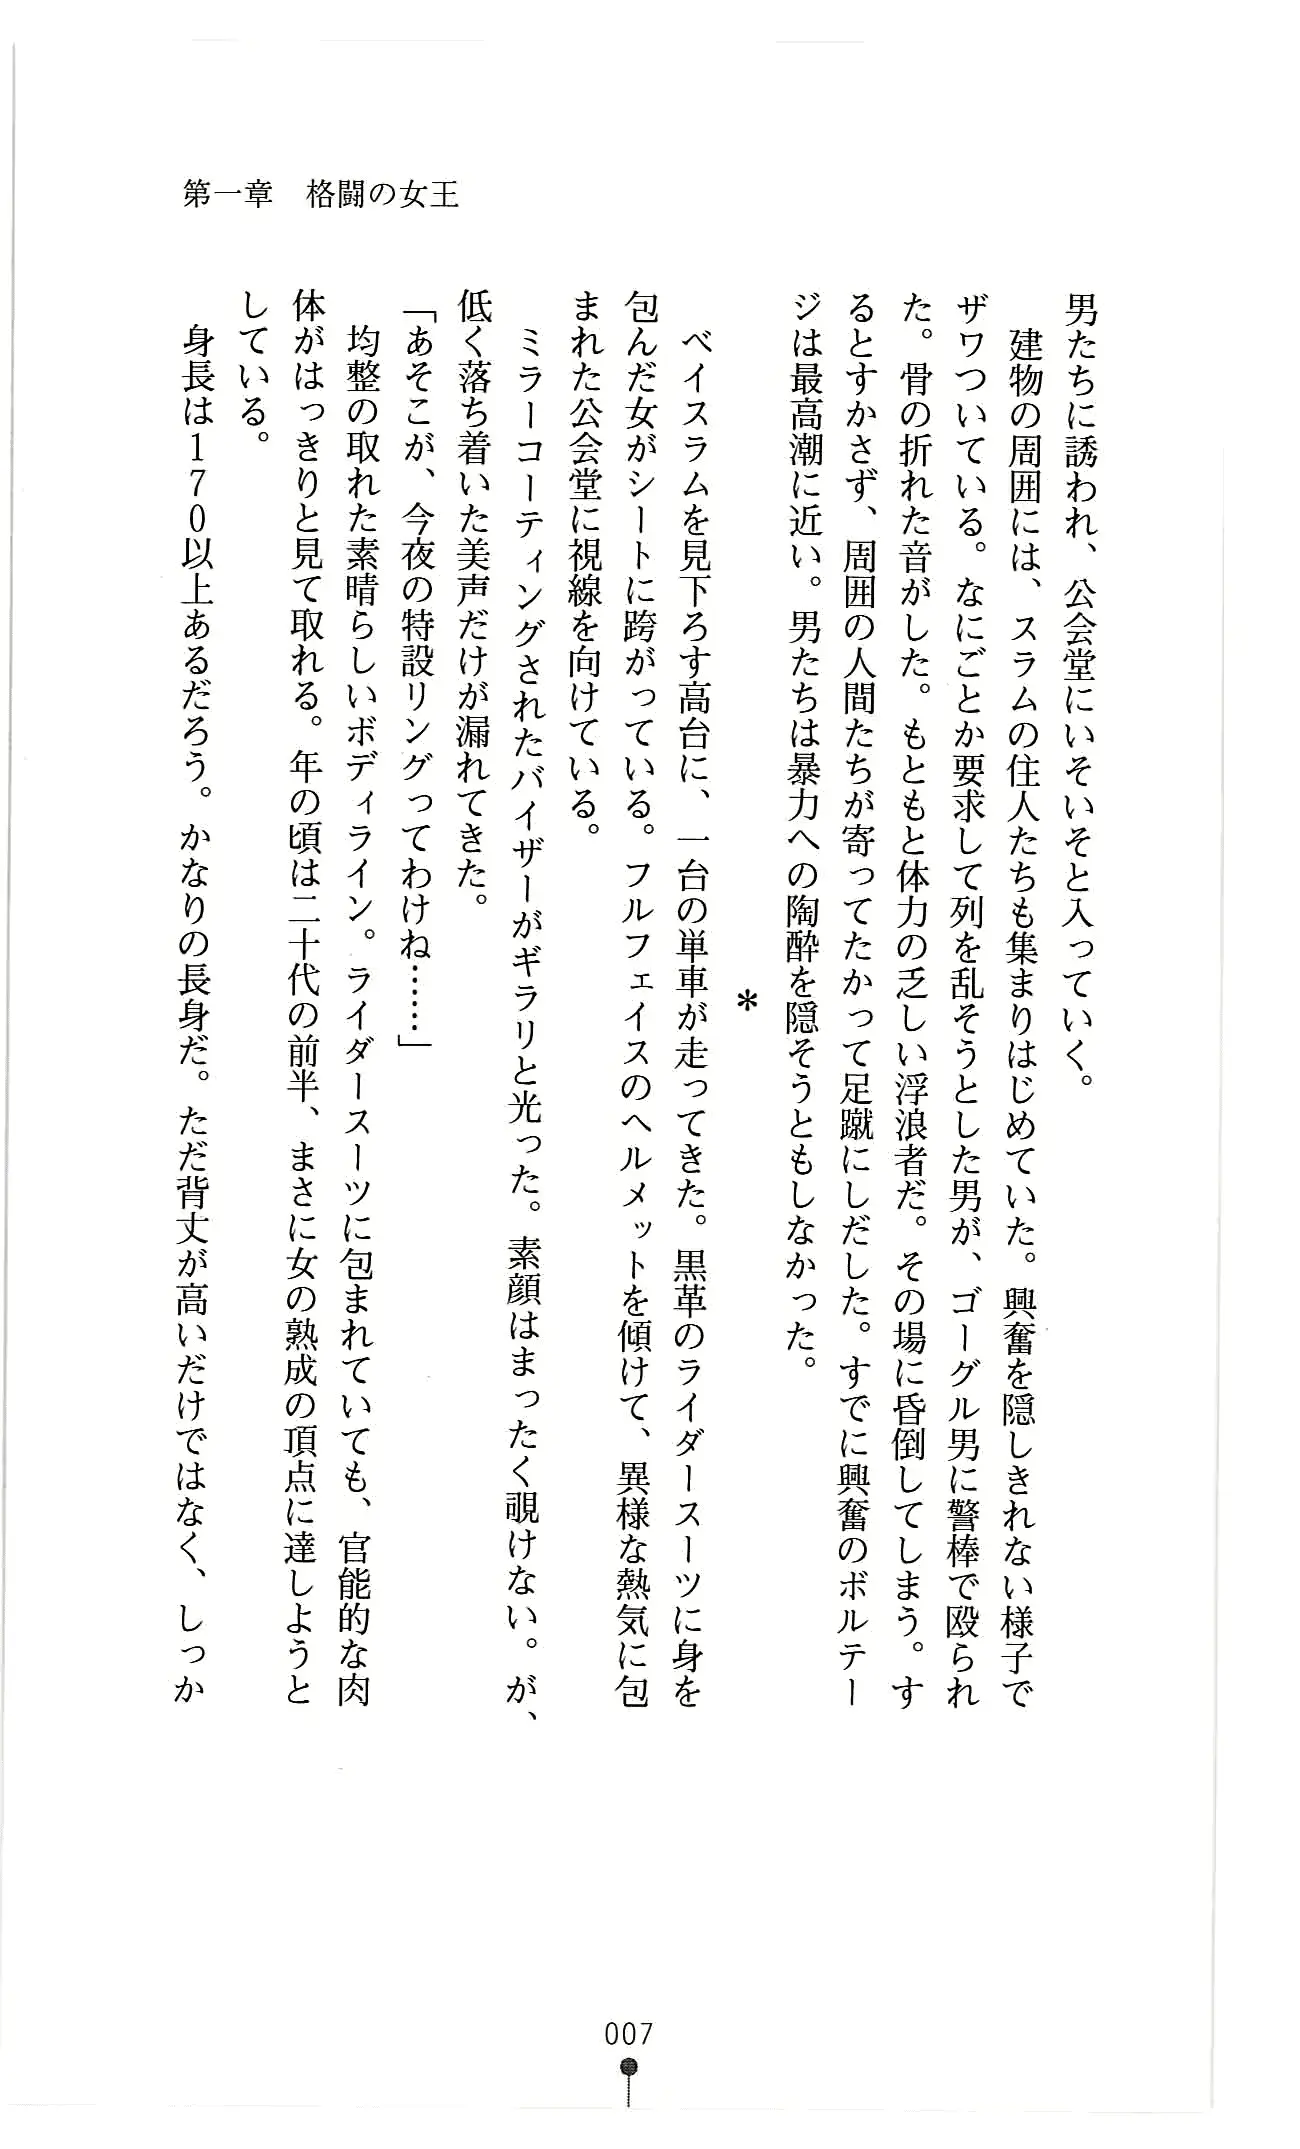 第一章　格闘の女王
男たちに誘われ、公会堂にいそいそと入っていく。
　建物の周囲には、スラムの住人たちも集まりはじめていた。興奮を隠しきれない様子で
ザワついている。なにごとか要求して列を乱そうとした男が、ゴーグル男に警棒で殴られ
た。骨の折れた音がした。もともと体力の乏しい浮浪者だ。その場に昏倒してしまう。す
るとすかさず、周囲の人間たちが寄ってたかって足蹴にしだした。すでに興奮のボルテー
ジは最高潮に近い。男たちは暴力への陶酔を隠そうともしなかった。
＊
　ベイスラムを見下ろす高台に、一台の単車が走ってきた。黒革のライダースーツに身を
包んだ女がシートに跨がっている。フルフェイスのヘルメットを傾けて、異様な熱気に包
まれた公会堂に視線を向けている。
　ミラーコーティングされたバイザーがギラリと光った。素顔はまったく覗けない。が、
低く落ち着いた美声だけが漏れてきた。
「あそこが、今夜の特設リングってわけね……」
　均整の取れた素晴らしいボディライン。ライダースーツに包まれていても、官能的な肉
体がはっきりと見て取れる。年の頃は二十代の前半、まさに女の熟成の頂点に達しようと
している。
　身長は１７０以上あるだろう。かなりの長身だ。ただ背丈が高いだけではなく、しっか
007